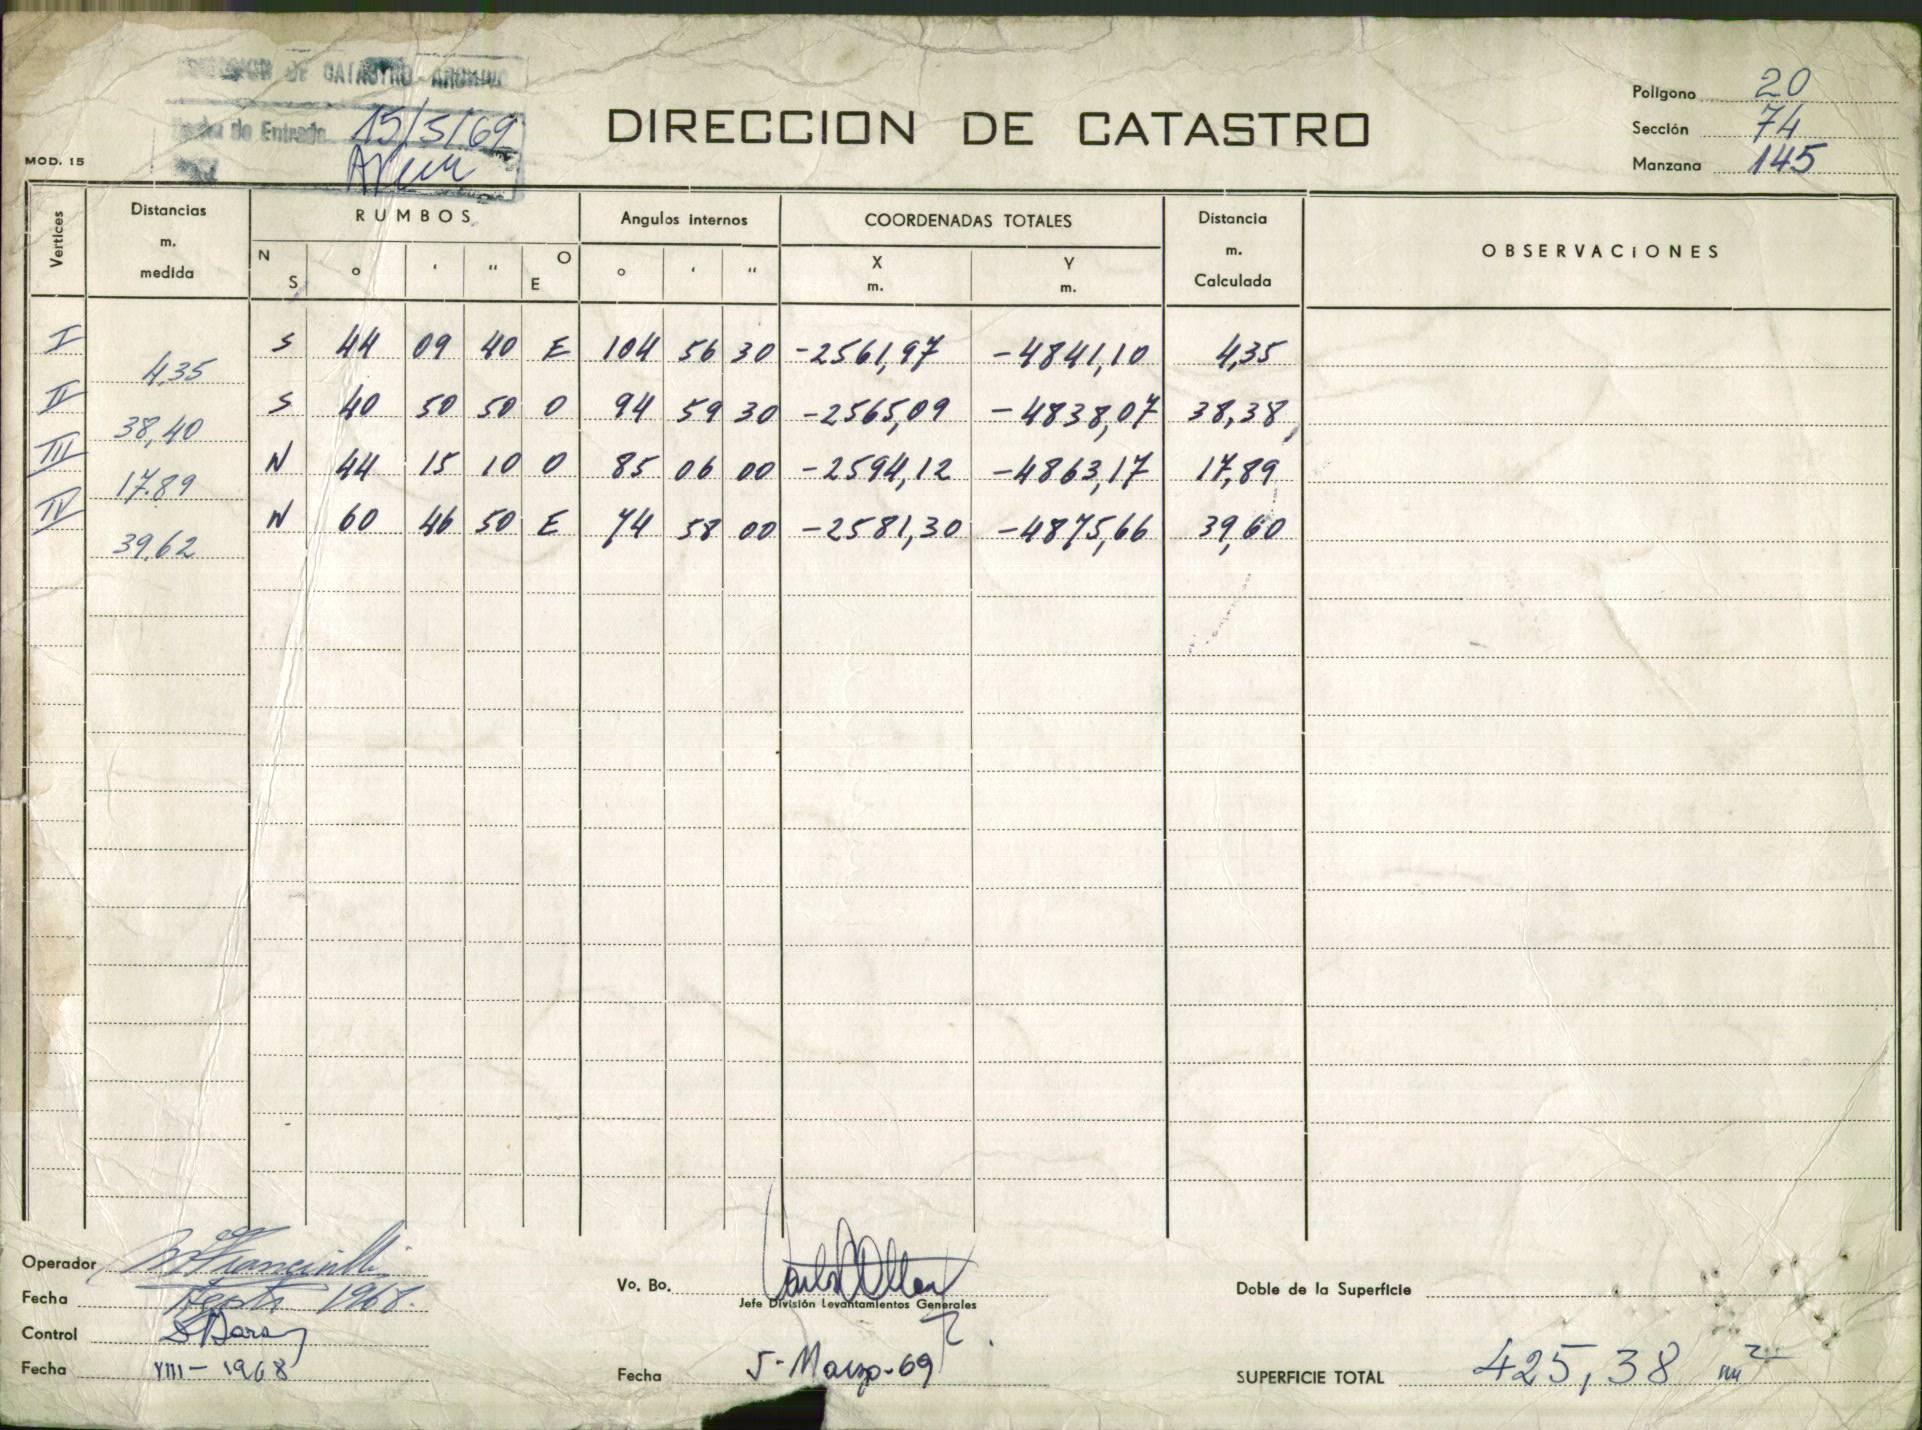 DE CATASTRO - ARCHIVO
de Entrada 15/5/69
MOD. 15
DIRECCION DE CATASTRO
Polígono 20
Sección 74
Manzana 145
Vertices
Distancias m. medida
RUMBOS
N S ° ' " O E
Angulos internos
° ' "
COORDENADAS TOTALES
X m.
Y m.
Distancia m. Calculada
OBSERVACIONES
I S 44 09 40 E 104 56 30 -2561,97 -4841,10 4,35
4,35
II S 40 50 50 O 94 59 30 -2565,09 -4838,07 38,38
38,40
III N 44 15 10 O 85 06 00 -2594,12 -4863,17 17,89
17.89
IV N 60 46 50 E 74 58 00 -2581,30 -4875,66 39,60
39,62
Operador
Fecha Agosto 1968.
Control
Fecha VIII - 1968
Vo. Bo.
Jefe División Levantamientos Generales
Fecha 5-Marzo-69
Doble de la Superficie
SUPERFICIE TOTAL 425,38 m²